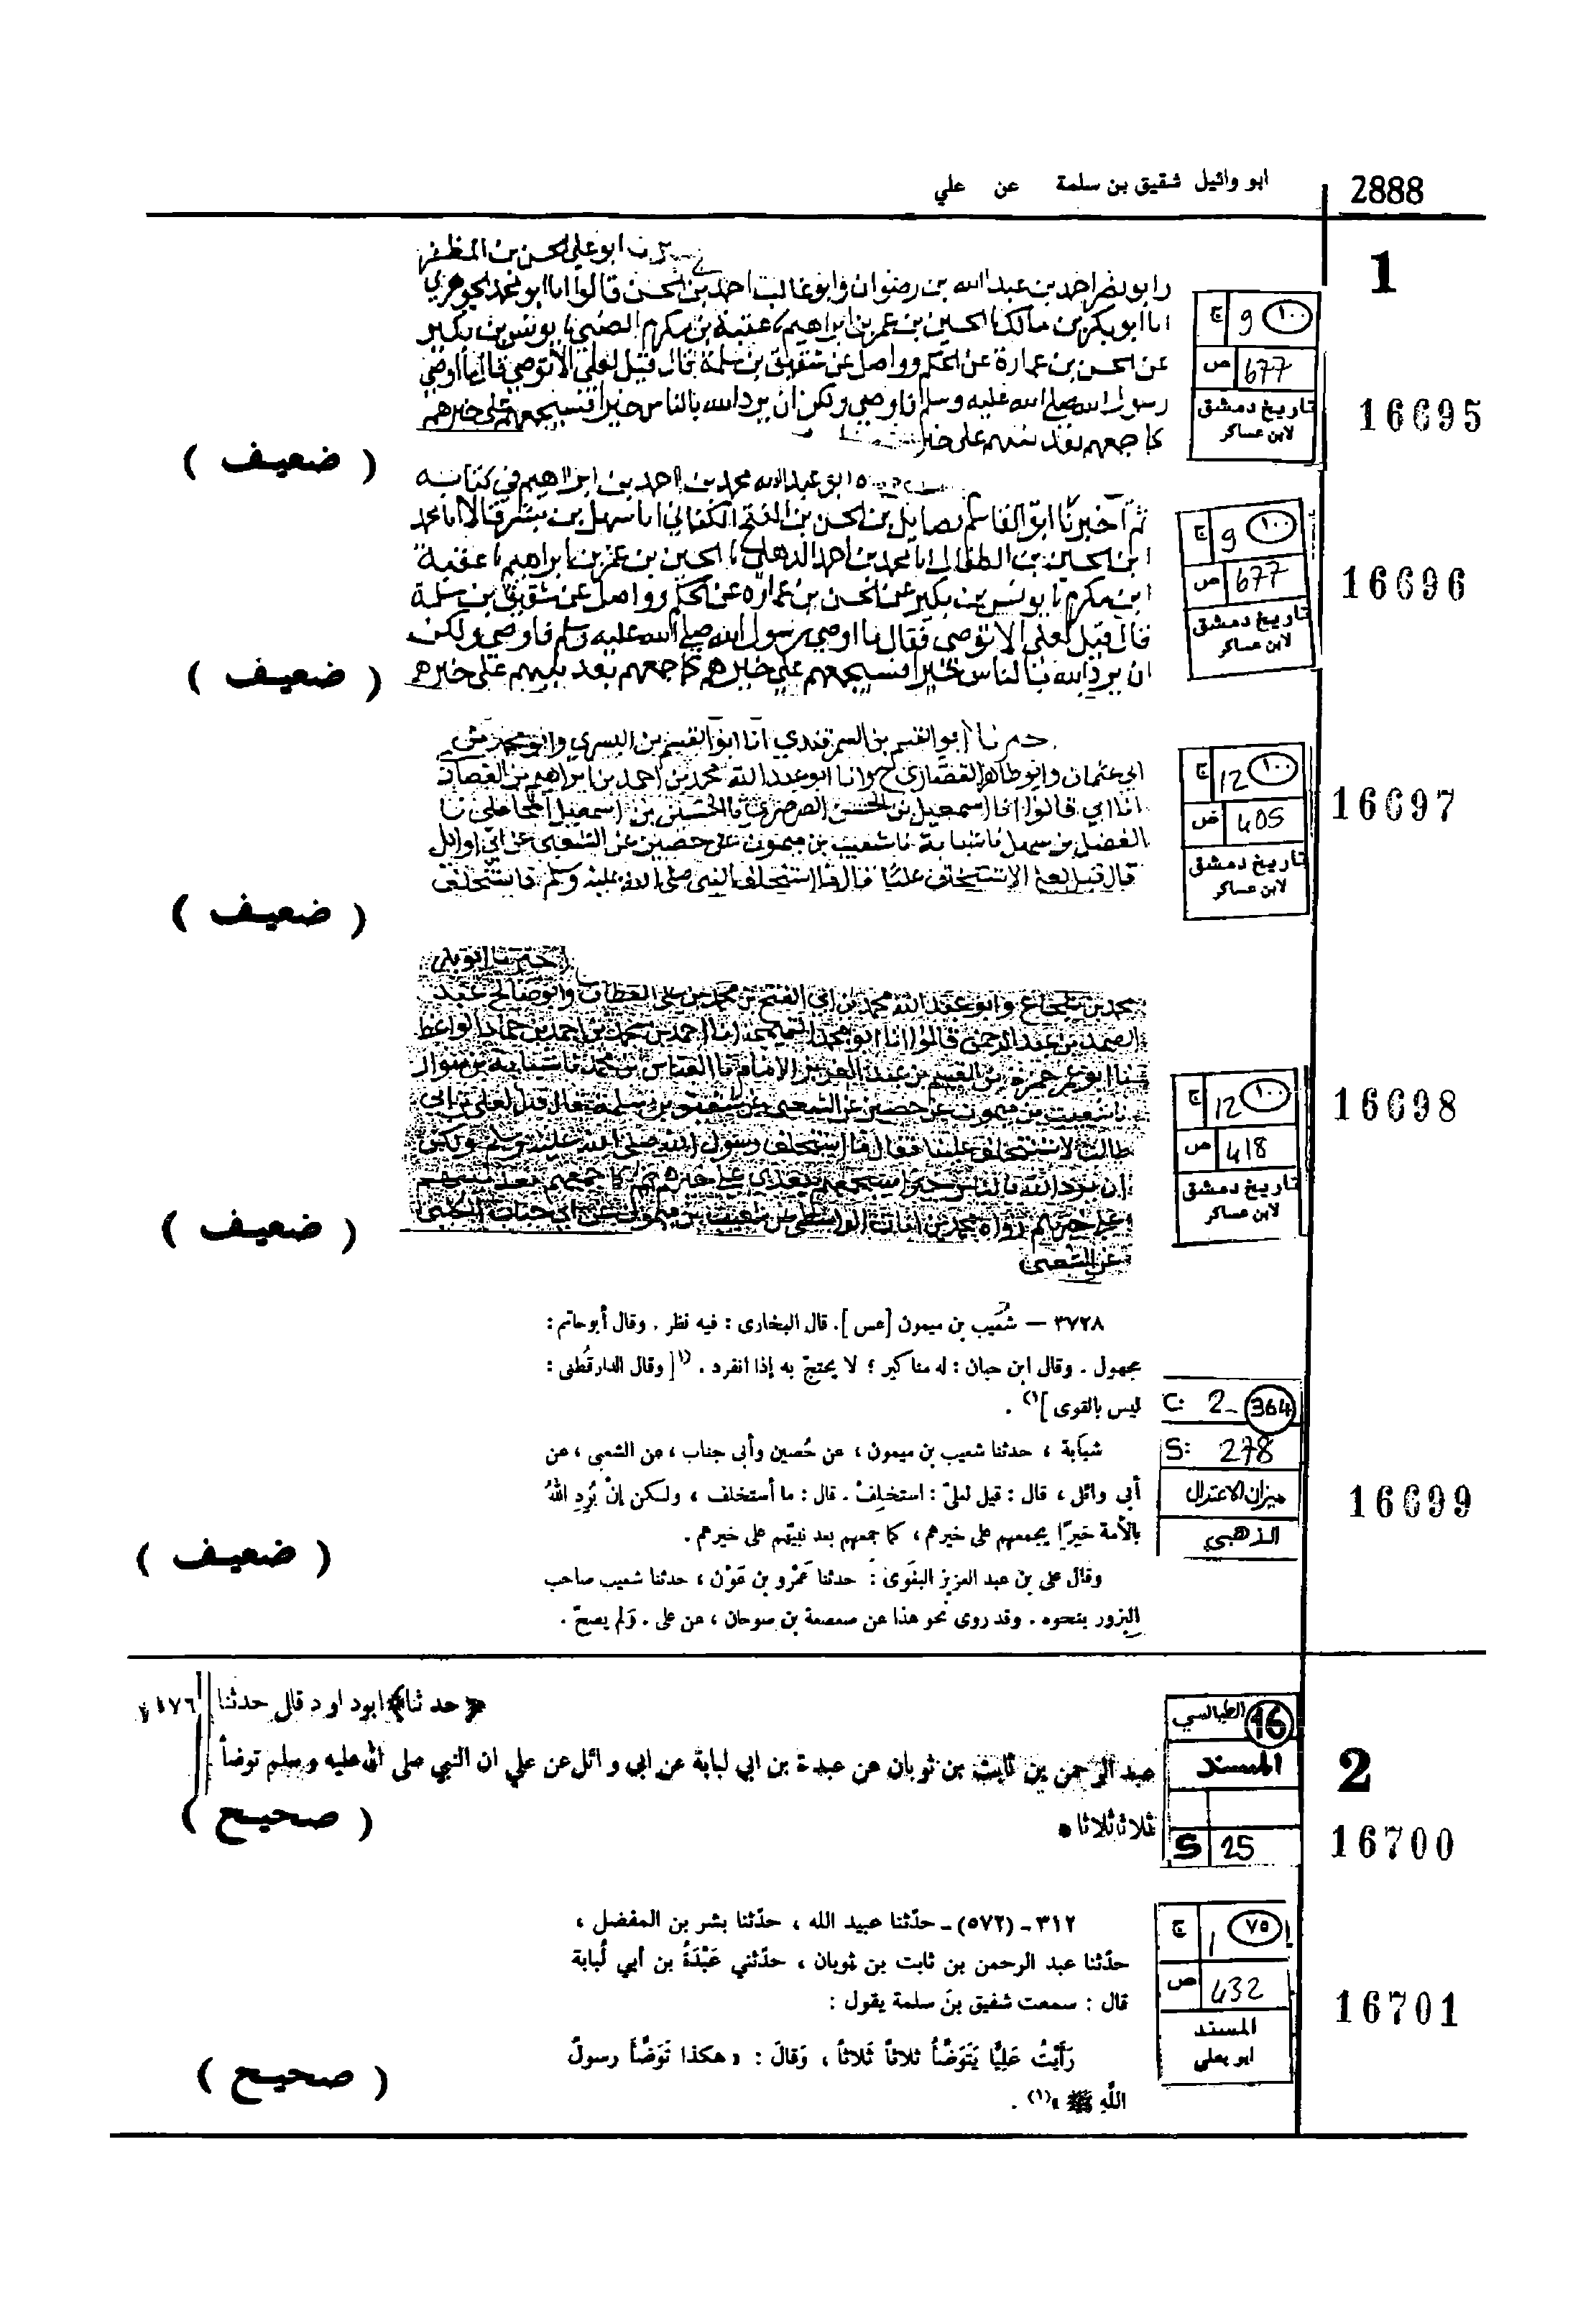 2888
ابو وائيل شقيق بن سلمة عن علي
1
ابو علي الحسن بن المظفر
وابو نصر احمد بن عبد الله بن رضوان وابو غالب احمد بن الحسن قالوا انا ابو محمد الجوهري
انا ابو بكر بن مالك نا الحسين بن عمر بن ابراهيم نا عقبة بن مكرم الضبي نا يونس بن بكير
عن الحسن بن عمارة عن الحكم وواصل عن شقيق بن سلمة قال قيل لعلي الا توصي قال ما اوصى
رسول الله صلى الله عليه وسلم فاوصي ولكن ان يرد الله بالناس خيرا فسيجمعهم على خيرهم
كما جمعهم بعد نبيهم على خيرهم
ج 9 ١٠٠
ص 677
تاريخ دمشق
لابن عساكر
16695
( ضعيف )
ابو عبد الله محمد بن احمد بن ابراهيم في كتابه
ثم اخبرنا ابو القاسم بن الحسن بن الفتح انا سهل بن بشر قالا انا محمد
ابن الحسين بن الطفال انا محمد بن احمد الذهلي نا الحسين بن عمر بن ابراهيم نا عقبة
ابن مكرم نا يونس بن بكير عن الحسن بن عمارة عن الحكم وواصل عن شقيق بن سلمة
قال قيل لعلي الا توصي فقال ما اوصى رسول الله صلى الله عليه وسلم فاوصي ولكن
ان يرد الله بالناس خيرا فسيجمعهم على خيرهم كما جمعهم بعد نبيهم على خيرهم
ج 9 ١٠٠
ص 677
تاريخ دمشق
لابن عساكر
16696
( ضعيف )
ابو القسم بن السمرقندي انا ابو القسم بن البسري وابو محمد بن
ابي عثمان وابو طاهر القصاري ح وانا ابو عبد الله محمد بن احمد بن ابراهيم بن القصاري
انا ابي قالوا انا اسمعيل بن الحسن الصرصري نا الحسين بن اسمعيل المحاملي نا
الفضل بن سهل نا شبابة نا شعيب بن ميمون عن حصين عن الشعبي عن ابي وائل
قال قيل لعلي الا تستخلف علينا قال ما استخلف النبي صلى الله عليه وسلم فاستخلف
ج 12 ١٠٠
ص 405
تاريخ دمشق
لابن عساكر
16697
( ضعيف )
اخبرنا ابو بكر
محمد بن شجاع وابو عبد الله محمد بن ابي الفتح بن محمد بن علي القطان وابو صالح عبد
الصمد بن عبد الرحمن قالوا انا ابو محمد التميمي انا احمد بن محمد بن احمد بن حماد الواعظ
نا ابو عمر حمزة بن القسم بن عبد العزيز الامام نا العباس بن محمد نا شبابة بن سوار
نا شعيب بن ميمون عن حصين عن الشعبي عن شقيق بن سلمة قال قيل لعلي بن ابي
طالب الا تستخلف علينا فقال ما استخلف رسول الله صلى الله عليه وسلم ولكن
ان يرد الله بالناس خيرا سيجمعهم بعدي على خيرهم كما جمعهم بعد نبيهم
على خيرهم رواه محمد بن ابان الواسطي عن شعيب بن ميمون عن ابي جناب الكلبي
عن الشعبي
ج 12 ١٠٠
ص 418
تاريخ دمشق
لابن عساكر
16698
( ضعيف )
٣٧٢٨ – شُعَيب بن ميمون [عس]. قال البخارى : فيه نظر . وقال أبو حاتم :
مجهول . وقال ابن حبان : له مناكير ؛ لا يحتج به إذا انفرد . (١[ وقال الدارقُطنى :
ليس بالقوى ]١) .
شبابة ، حدثنا شعيب بن ميمون ، عن حُصين وأبى جناب ، عن الشعبى ، عن
أبى وائل ، قال : قيل لعلىّ : استخلِفْ . قال : ما أستخلف ، ولكن إنْ يُرِدِ اللهُ
بالأمة خيرًا يجمعهم على خيرهم ، كما جمعهم بعد نبيّهم على خيرهم .
وقال على بن عبد العزيز البغوى : حدثنا عَمْرو بن عَوْن ، حدثنا شعيب صاحب
البزور بنحوه . وقد روى نحو هذا عن صعصعة بن صوحان ، عن على . ولم يصحّ .
C: 2_ 364
S: 278
ميزان الاعتدال
الذهبي
16699
( ضعيف )
﴿حدثنا﴾ ابوداود قال حدثنا
١٧٦
عبد الرحمن بن ثابت بن ثوبان عن عبدة بن ابي لبابة عن ابي وائل عن علي ان النبي صلى الله عليه وسلم توضأ
ثلاثا ثلاثا •
الطيالسي 16
المسند
S 25
2
16700
( صحيح )
٣١٢ - (٥٧٢) - حدّثنا عبيد الله ، حدّثنا بشر بن المفضل ،
حدّثنا عبد الرحمن بن ثابت بن ثوبان ، حدّثني عَبْدَةُ بن أبي لُبابة
قال : سمعت شقيق بنَ سلمة يقول :
رَأَيْتُ عَلِيًّا يَتَوَضَّأُ ثلاثاً ثَلاثاً ، وَقالَ : « هكذا تَوَضَّأَ رسولُ
اللَّهِ ﷺ »(١) .
ج 1 ٧٥
ص 432
المسند
ابو يعلى
16701
( صحيح )